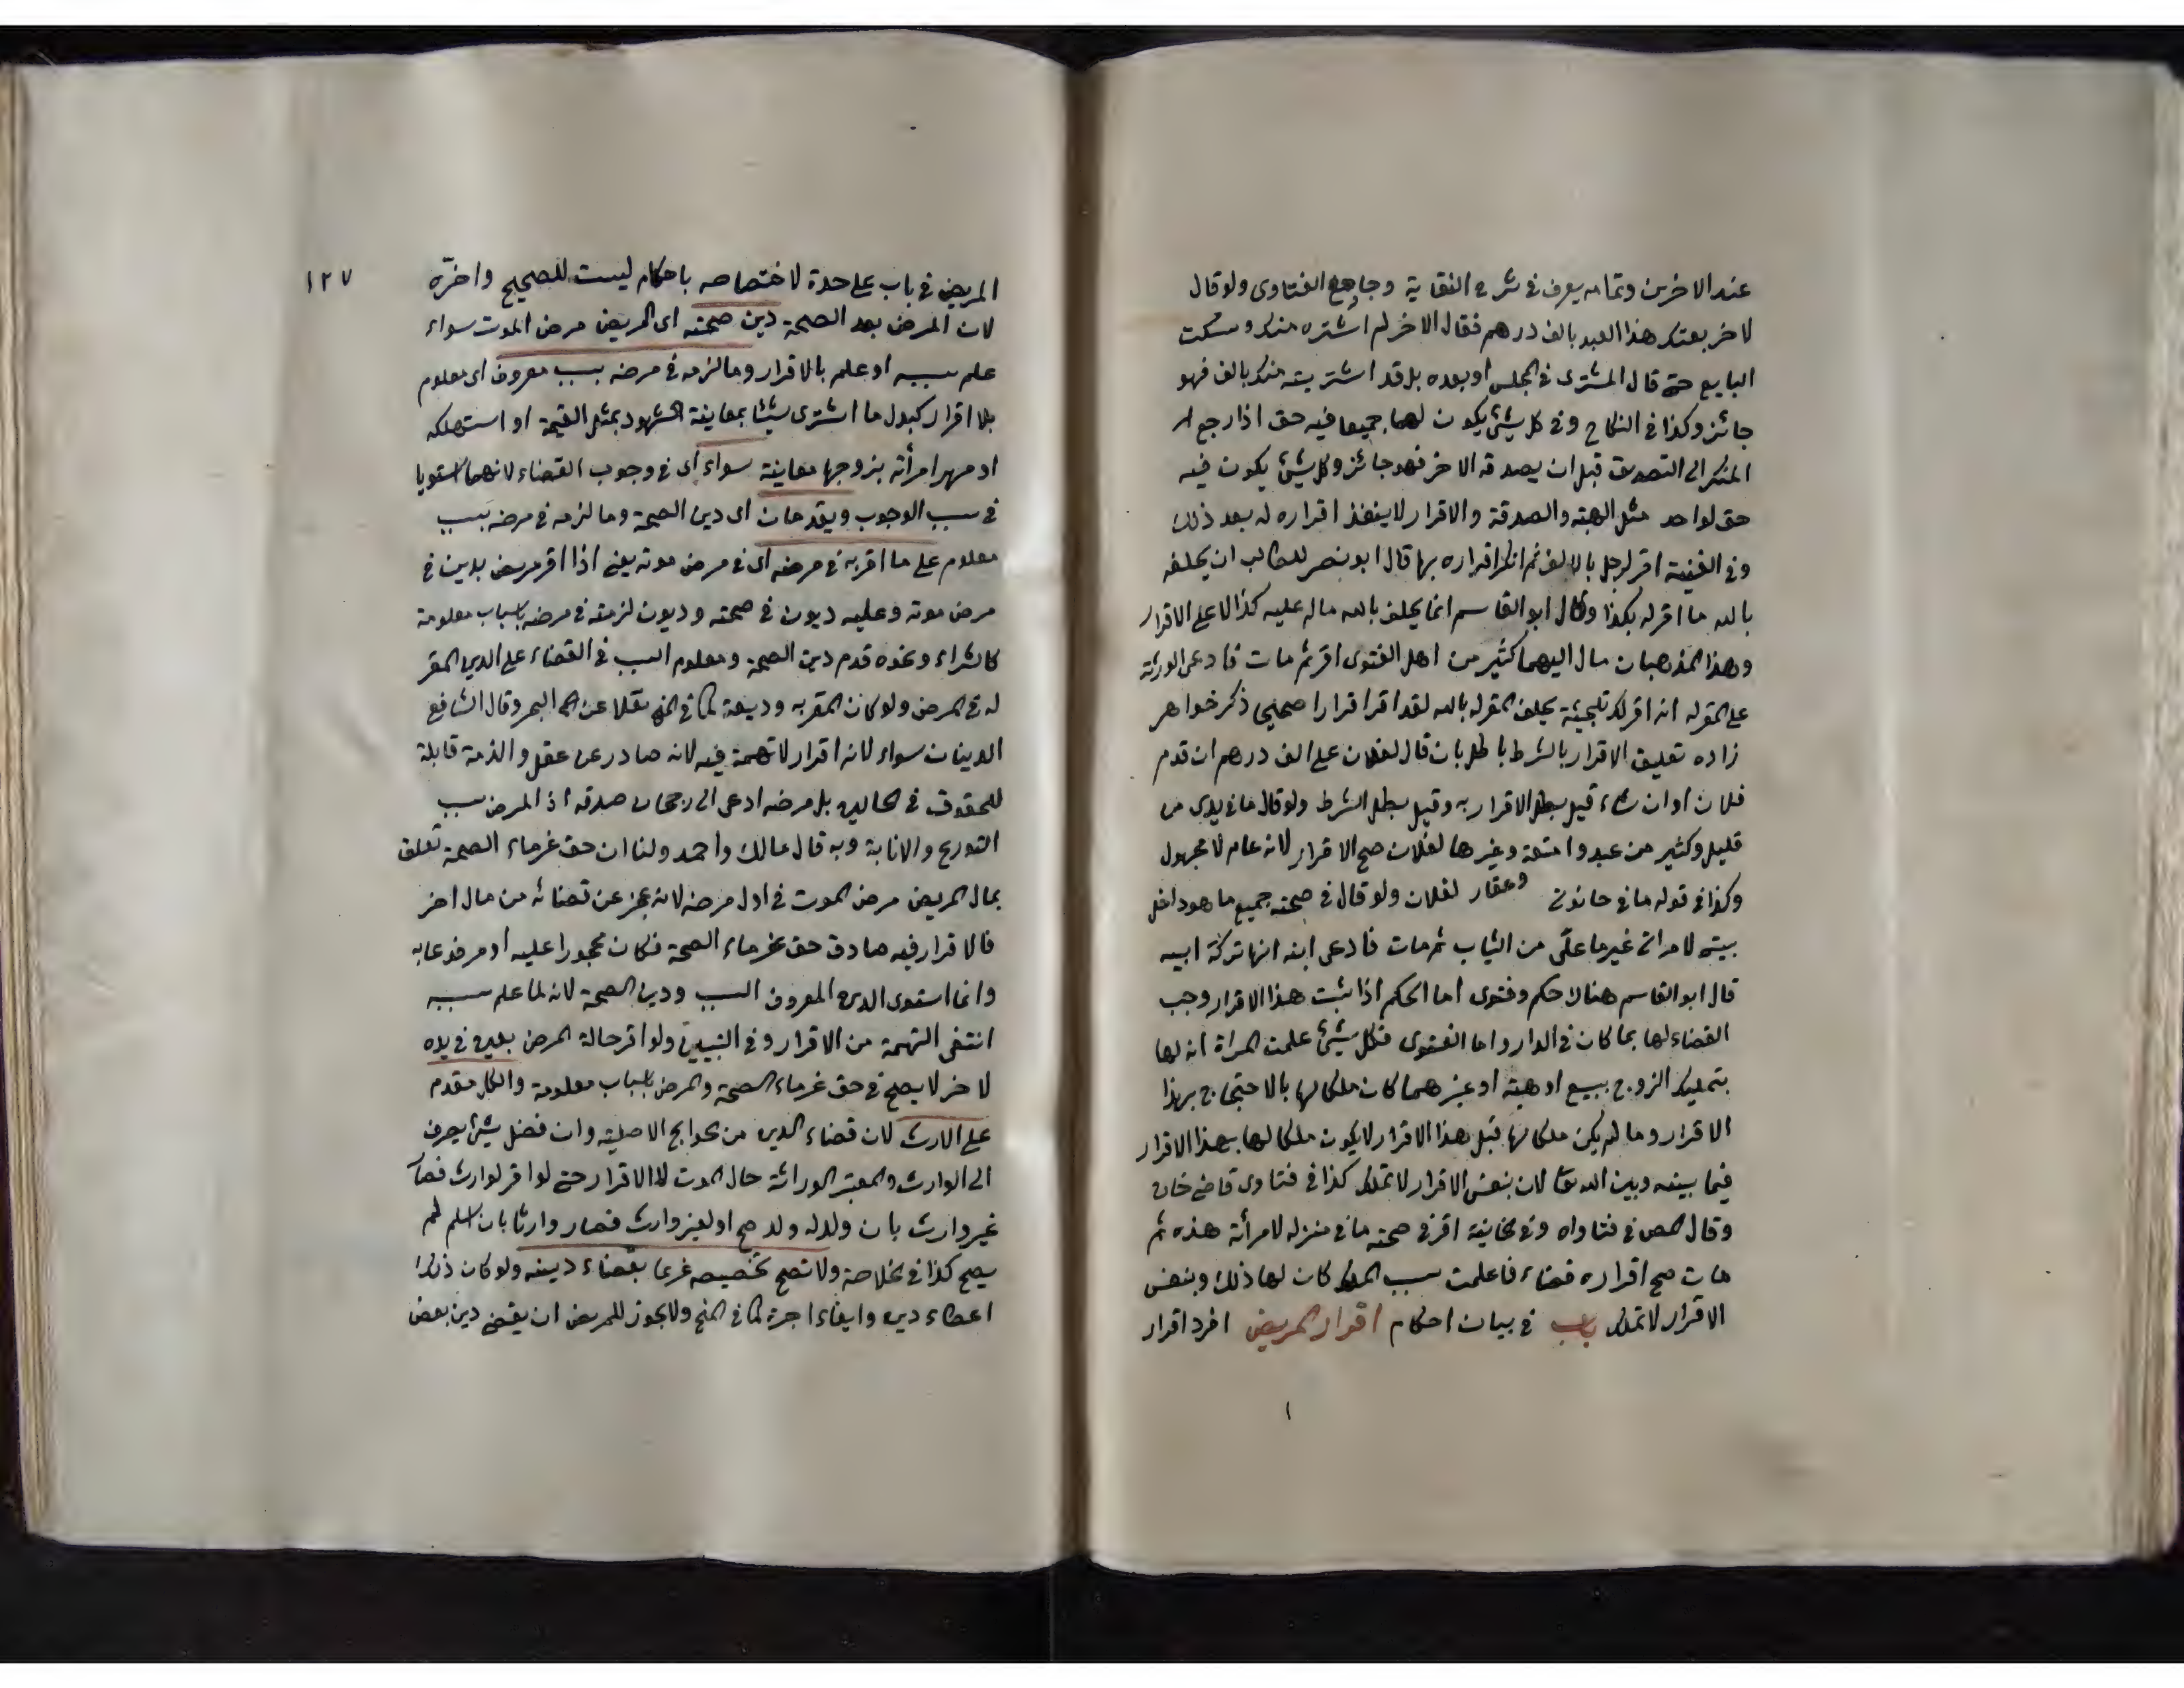 عند الاخرين وتمامه يعرف في شرح النقاية وجامع الفتاوى ولو قال
لاخر بعتك هذا العبد بالف درهم فقال الاخر لم اشتره منك وسكت
البايع حتى قال المشترى في المجلس او بعده بل قد اشتريته منك بالف فهو
جائز وكذا في النكاح وفى كل شئ يكون لهما جميعا فيه حق اذا رجع
المنكر الى التصديق قبل ان يصدقه الاخر فهو جائز وكل شئ يكون فيه
حق لواحد مثل الهبة والصدقة والاقرار لا ينفذ اقراره له بعد ذلك
وفى القنية اقر لرجل بالالف ثم انكر اقراره بها قال ابو نصر للطالب ان يحلفه
بالله ما اقر له بكذا وقال ابو القاسم انما يحلف بالله ماله عليه كذا لا على الاقرار
وهذا المذهبان مال اليهما كثير من اهل الفتوى اقر ثم مات فادعى الورثة
على المقر له انه اقر لك تلجئة يحلف المقر له بالله لقد اقر اقرارا صحيحا ذكر خواهر
زاده تعليق الاقرار بالشرط باطل بان قال لفلان على الف درهم ان قدم
فلان او ان شاء قيل يبطل الاقرار به وقيل يبطل الشرط ولو قال ما في يدى من
قليل وكثير من عبد وامتعة وغيرها لفلان صح الاقرار لانه عام لا مجهول
وكذا في قوله ما في حانوتى وعقار لفلان ولو قال في صحته جميع ما هو داخل
بيتى لامراتى غير ما علّى من الثياب ثم مات فادعى ابنه انها تركة ابيه
قال ابو القاسم هنالا حكم وفتوى اما الحكم اذا ثبت هذا الاقرار وجب
القضاء لها بما كان في الدار واما الفتوى فكل شئ علمت المراة انه لها
بتمليك الزوج ببيع او هبة او غيرهما كان ملكا لها بالاحتجاج بهذا
الاقرار وما لم يكن ملكا لها قبل هذا الاقرار لا يكون ملكا لها بهذا الاقرار
فيما بينه وبين الله تعا لان بنفس الاقرار لا تملك كذا في فتاوى قاضى خان
وقال المص في فتاواه وفى الخانية اقر في صحته ما في منزله لامرأته هذه ثم
مات صح اقراره قضاء فاعلمت سبب الملك كان لها ذلك وبنفس
الاقرار لا تملك باب في بيان احكام اقرار المريض افرد اقرار
١٢٧
المريض في باب على حدة لاختصاصه باحكام ليست للصحيح واخرّه
لان المرض بعد الصحة دين صحته اى المريض مرض الموت سواء
علم سببه او علم بالاقرار وما لزمه في مرضه بسبب معروف اى معلوم
بلا اقرار كبدل ما اشترى شيئا بمعاينة الشهود بمثل القيمة او استهلكه
او مهر امرأته بتزوجها معاينة سواء اى في وجوب القضاء لانهما استويا
في سبب الوجوب ويقدمان اى دين الصحة وما لزمه في مرضه بسبب
معلوم على ما اقر به في مرضه اى في مرض موته يعنى اذا اقر مريض بدين في
مرض موته وعليه ديون في صحته وديون لزمته في مرضه باسباب معلومة
كالشراء ونحوه قدم دين الصحة ومعلوم السبب في القضاء على الدين المقر
له في المرض ولو كان المقر به وديعة كما في المنح نقلا عن البحر وقال الشافع
الدينان سواء لانه اقرار لا تهمة فيه لانه صادر عن عقل والذمة قابلة
للحقوق في الحالين بل مرضه ادعى الى رجحان صدقه اذ المرض سبب
التورع والانابة وبه قال مالك واحمد ولنا ان حق غرماء الصحة تعلق
بمال المريض مرض الموت في اول مرضه لانه عجز عن قضائه من مال اخر
فالاقرار فيه صادف حق غرماء الصحة فكان محجورا عليه او مرفوعا به
وانما استوى الدين المعروف السبب ودين الصحة لانه لما علم سببه
انتفى التهمة من الاقرار وفى التبيين ولو اقر حالة المرض بعين في يده
لاخر لا يصح في حق غرماء الصحة والمرض باسباب معلومة والكل مقدم
على الارث لان قضاء الدين من الحوايج الاصلية وان فضل شئ يصرف
الى الوارث والمعتبر الوراثة حال الموت لا الاقرار حتى لو اقر لوارث فصار
غير وارث بان ولد له ولد صح او لغير وارث فصار وارثا بان اسلم لم
يصح كذا في الخلاصة ولا تصح تخصيصه غريما بقضاء دينه ولو كان ذلك
اعطاء دين وايفاء اجرة كما في المنح ولا يجوز للمريض ان يقضى دين بعض